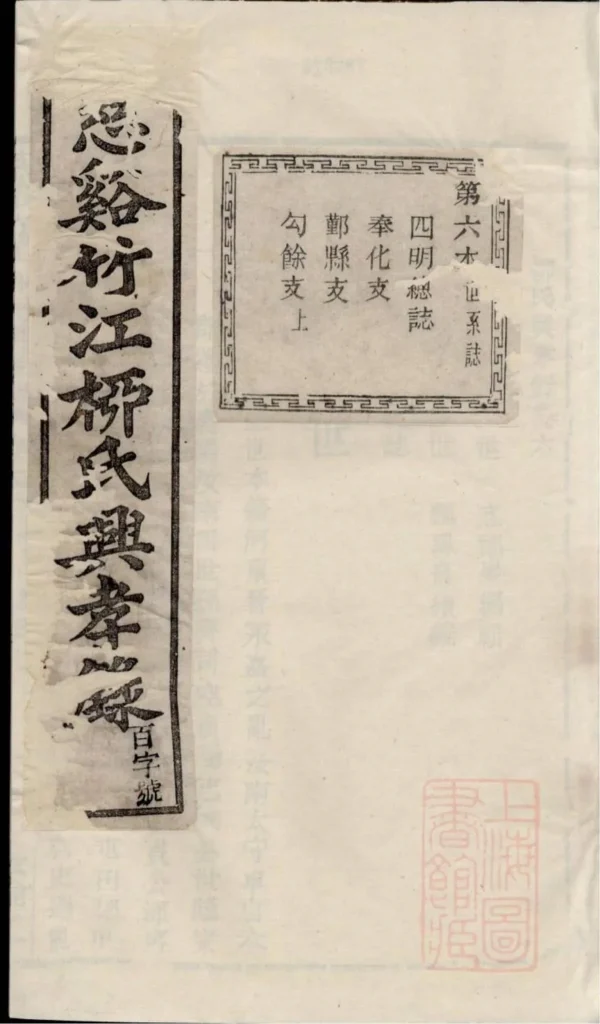 慈谿竹江栁氏興孝錄
百字號
第六本世系誌
四明總誌
奉化支
鄞縣支
勾餘支上
上海圖
書館藏